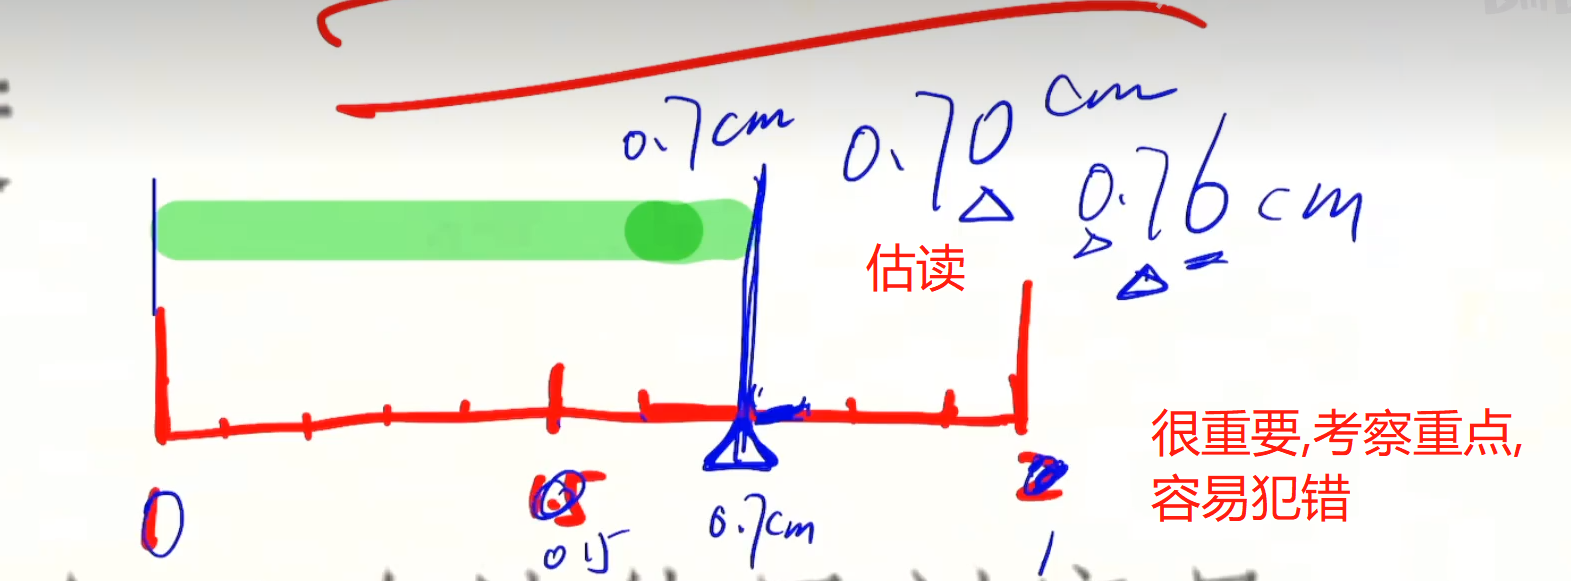 0.7cm
0.70 cm
0.76cm
估读
很重要,考察重点,
容易犯错
0
0.5
0.7cm
1